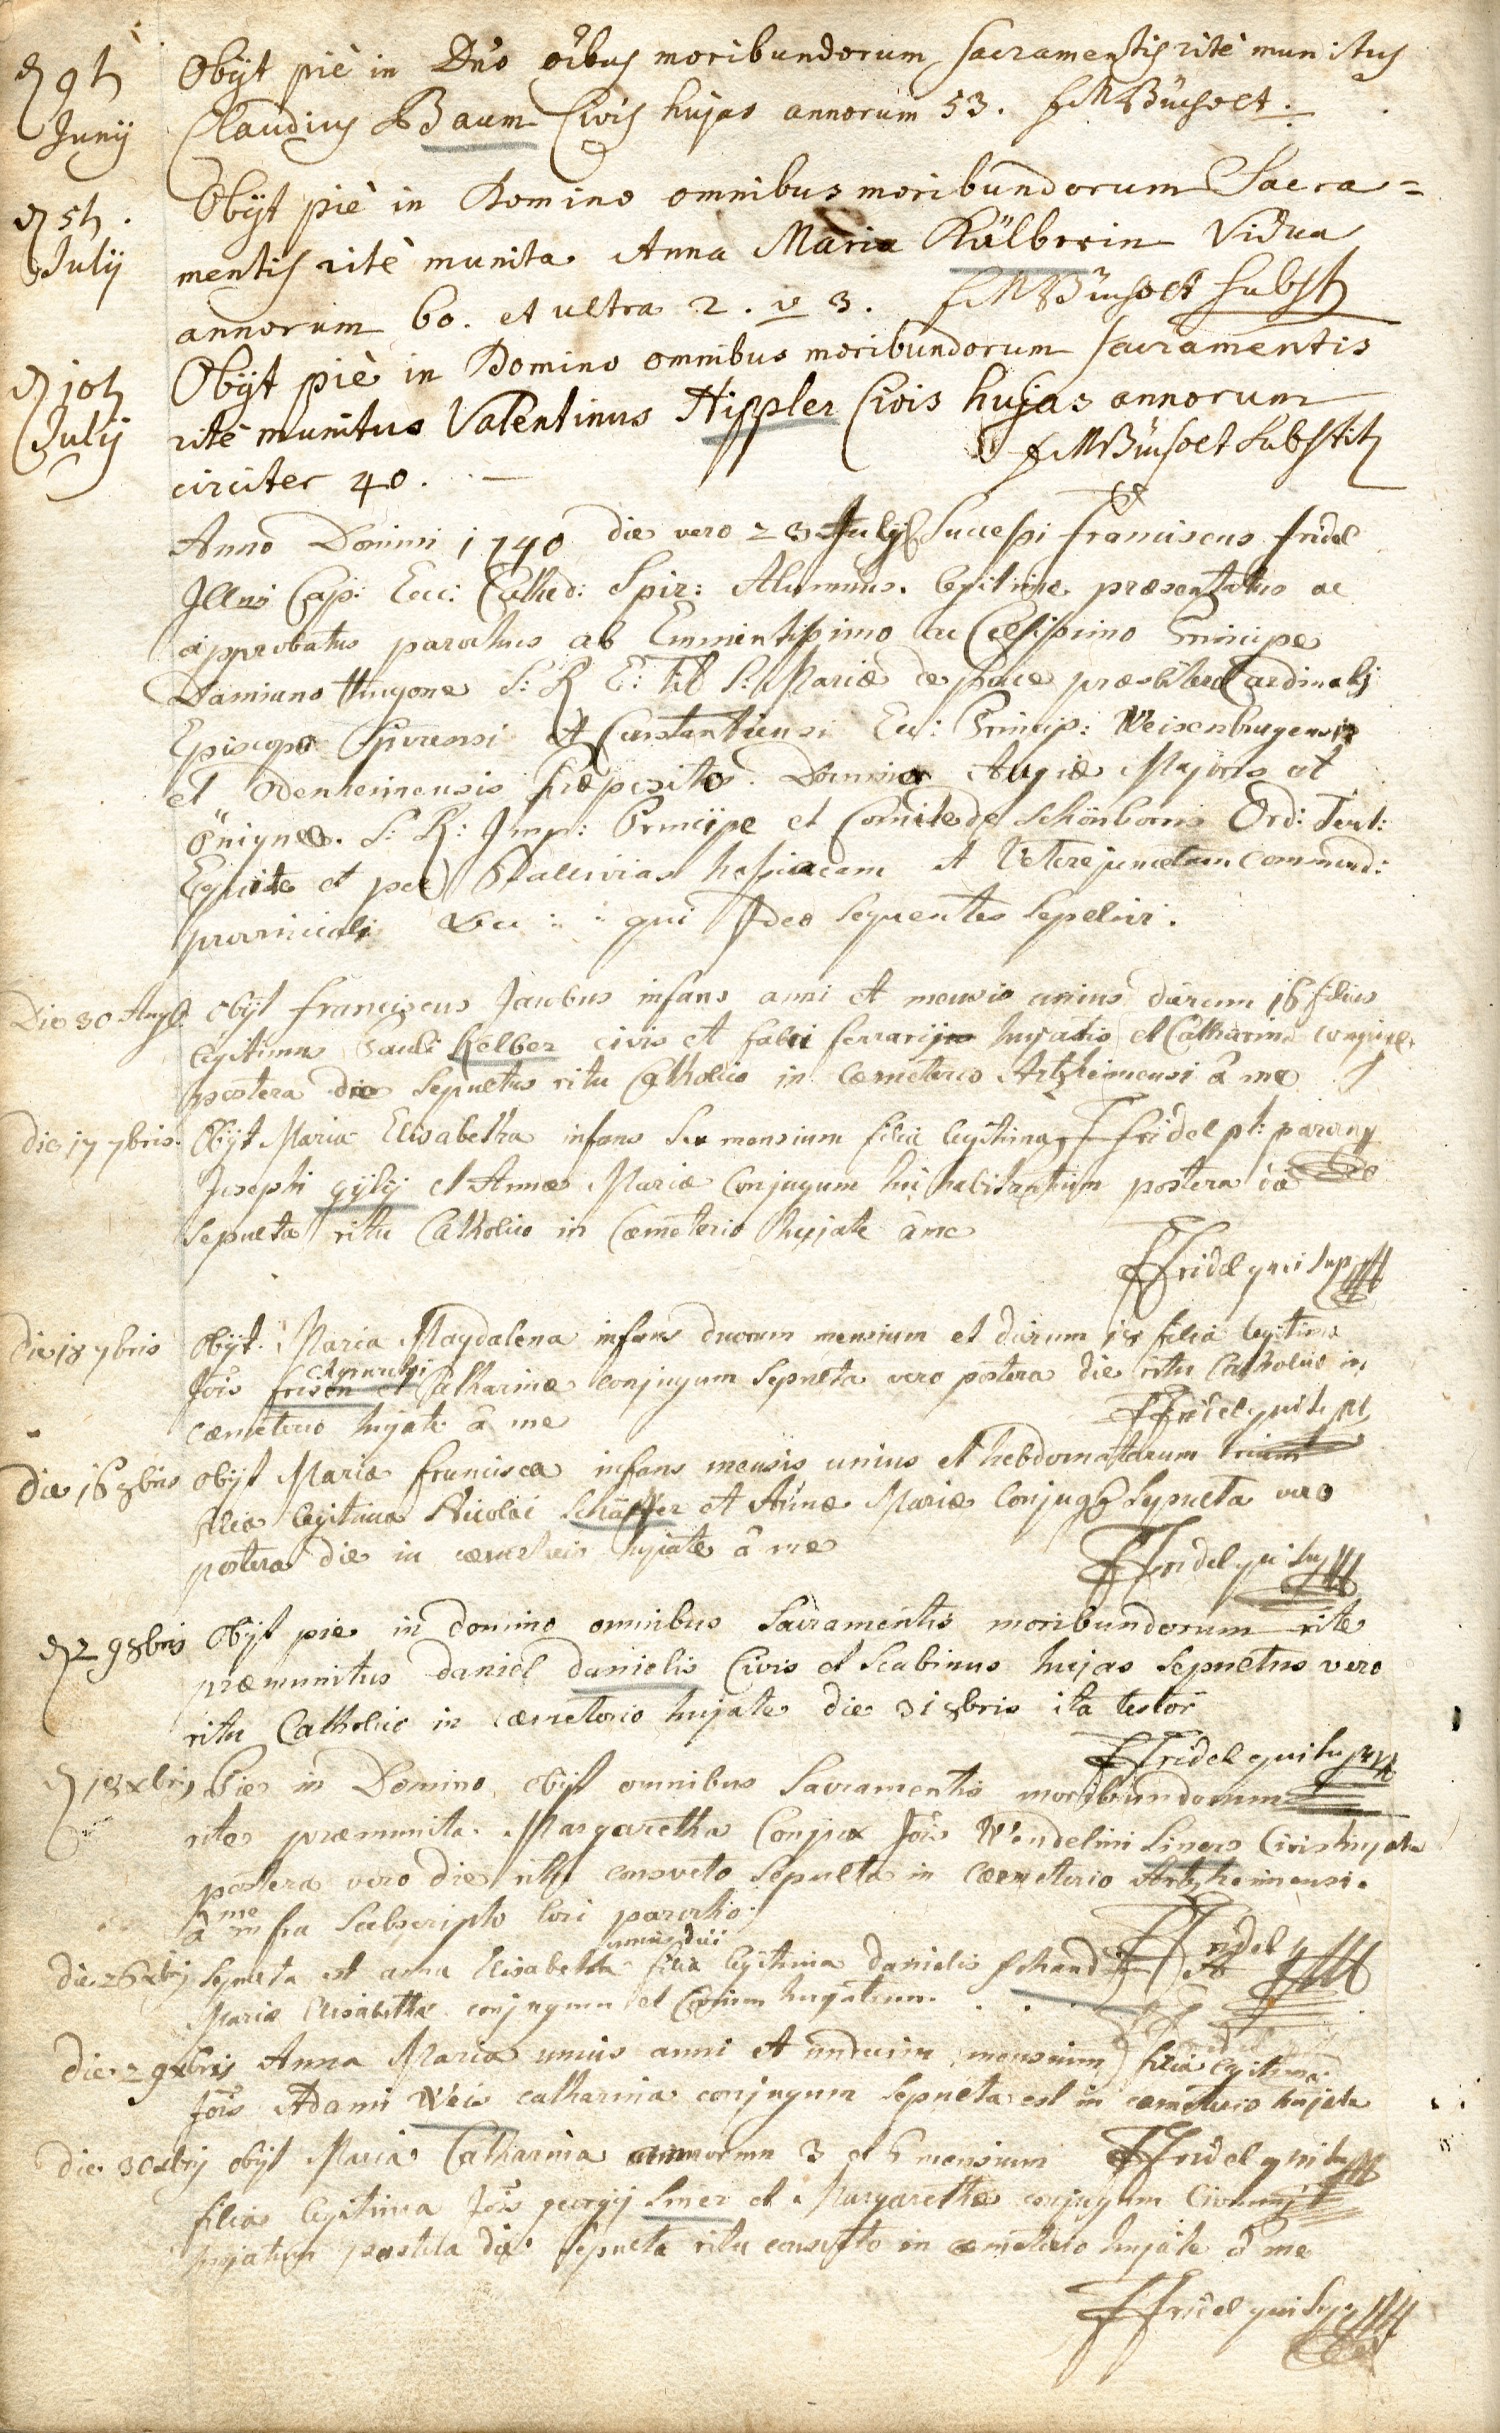 d 9t Obÿt piè in Dño oibus moribundorum sacramentis ritè munitus
Junÿ Claudius Baum Civis hujas annorum 53. f M Bünsoet.
d 5t. Obÿt piè in Domino omnibus moribundorum Sacra=
Julÿ mentis ritè munita Anna Maria Kälberin Vidua
annorum 60. et ultra 2. v 3. f M Bünsoet Subst
d 10t Obÿt piè in Domino omnibus moribundorum sacramentis
Julÿ ritè munitus Valentinus Hippler Civis hujas annorum
circiter 40. — f M Bünsoet Substit
Anno Domini 1740 die vero 23 Julÿ Successi Franciscus fridel
Illmi Cap: Ecc: Cathed: Spir: Alumnus. legitime præsentatus ac
approbatus parochus ab Eminentissimo ac Celsissimo Principe
Damiano Hugone S: R E: tit S: Mariæ de pace præsbitero Cardinali
Episcopo Spirensi et Constantiensi Ecc: Princip: Weisenburgensis
et Odenheimensis Præposito. Domino Augiæ Majoris et
Öningæ. S: R: Imp: Principe et Comite de Schönborn Ord: Teut:
Equite et per Ballivias hassiacam et Veterejunctam commend:
provinciali &c :: qui Ideo sequentes sepelivi.
Die 30 Aug: obÿt franciscus Jacobus infans anni et mensis unius dierum 16 filius
legitimus Pauli Kelber civis et fabri ferrarÿ hujatis et Catharinæ conjug.
postera die sepultus ritu Catholico in Cæmeterio Artzheimensi â me
die 17 7bris. Obÿt Maria Elisabetha infans sex mensium filia legitima F fridel pt: parochus
Josephi gÿlÿ et Annæ Mariæ Conjugum hic habitantium postera die
sepulta ritu Catholico in Cæmeterio hujate â me
FFridel qui sup
die 18 7bris Obÿt. Maria Magdalena infans duorum mensium et dierum 18 filia legitima
Jois frisen et Catharinæ conjugum sepulta vero postera die ritu Catholico in
cæmeterio hujate â me FFridel qui sup
die 16 8bris obÿt Maria francisca infans mensis unius et hebdomatarum trium
filia legitima Nicolai Schäffer et Annæ Mariæ Conjug sepulta vero
postera die in cæmeterio hujate â me
FFridel qui sup
d 29 8bris Obÿt pie in domino omnibus Sacramentis moribundorum rite
præmunitus daniel danielis Civis et Scabinus hujas sepultus vero
ritu Catholico in cæmeterio hujate die 31 8bris ita testor
FFridel qui sup
d 18 xbris Pie in Domino obÿt omnibus Sacramentis moribundorum
rite præmunita. Margaretha Conjux Jois Wendelini Siners Civis hujatis
postera vero die ritu consveto sepulta in Cæmeterio Artzheimensi.
â me infra Subscripto loci parocho
FFridel
die 26 xbris Sepulta est anna Elisabetha filia legitima danielis schand et
Mariæ Elisabethæ conjugum et Civium hujatium.
die 29 xbris Anna Maria unius anni et undecim mensium filia legitima
Jois Adami Weis catharina conjugum sepulta est in cæmeterio hujate
FFridel qui sup
die 30 xbris obÿt Maria Catharina annorum 3 et 6 mensium
filia legitima Jois georgÿ Siner et Margarethæ conjugum Civium
hujatium postera die sepulta ritu consveto in cæmeterio hujate â me
FFridel qui sup